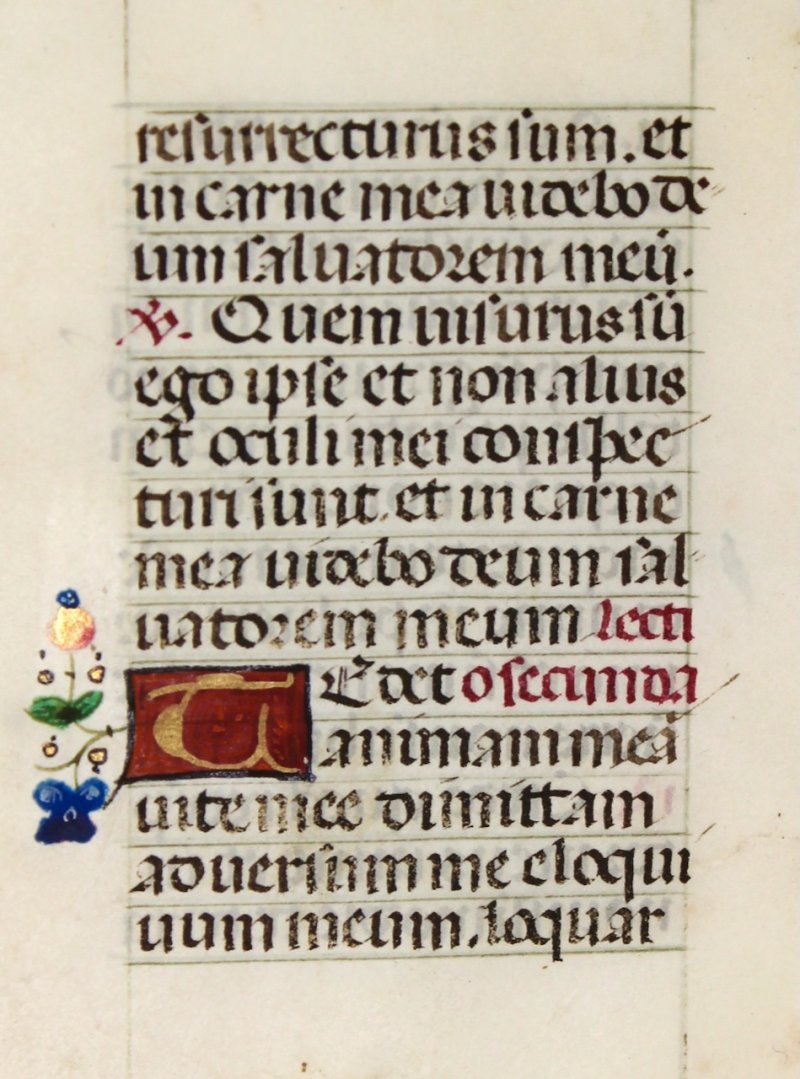 resurrecturus sum. et
in carne mea uidebo de
um saluatorem meū.
℣. Quem uisurus sū
ego ipse et non alius
et oculi mei conspec
turi sunt. et in carne
mea uidebo deum sal
uatorem meum lecti
TEdet o secunda
animam meā
uite mee dimittam
aduersum me eloqui
uum meum. loquar